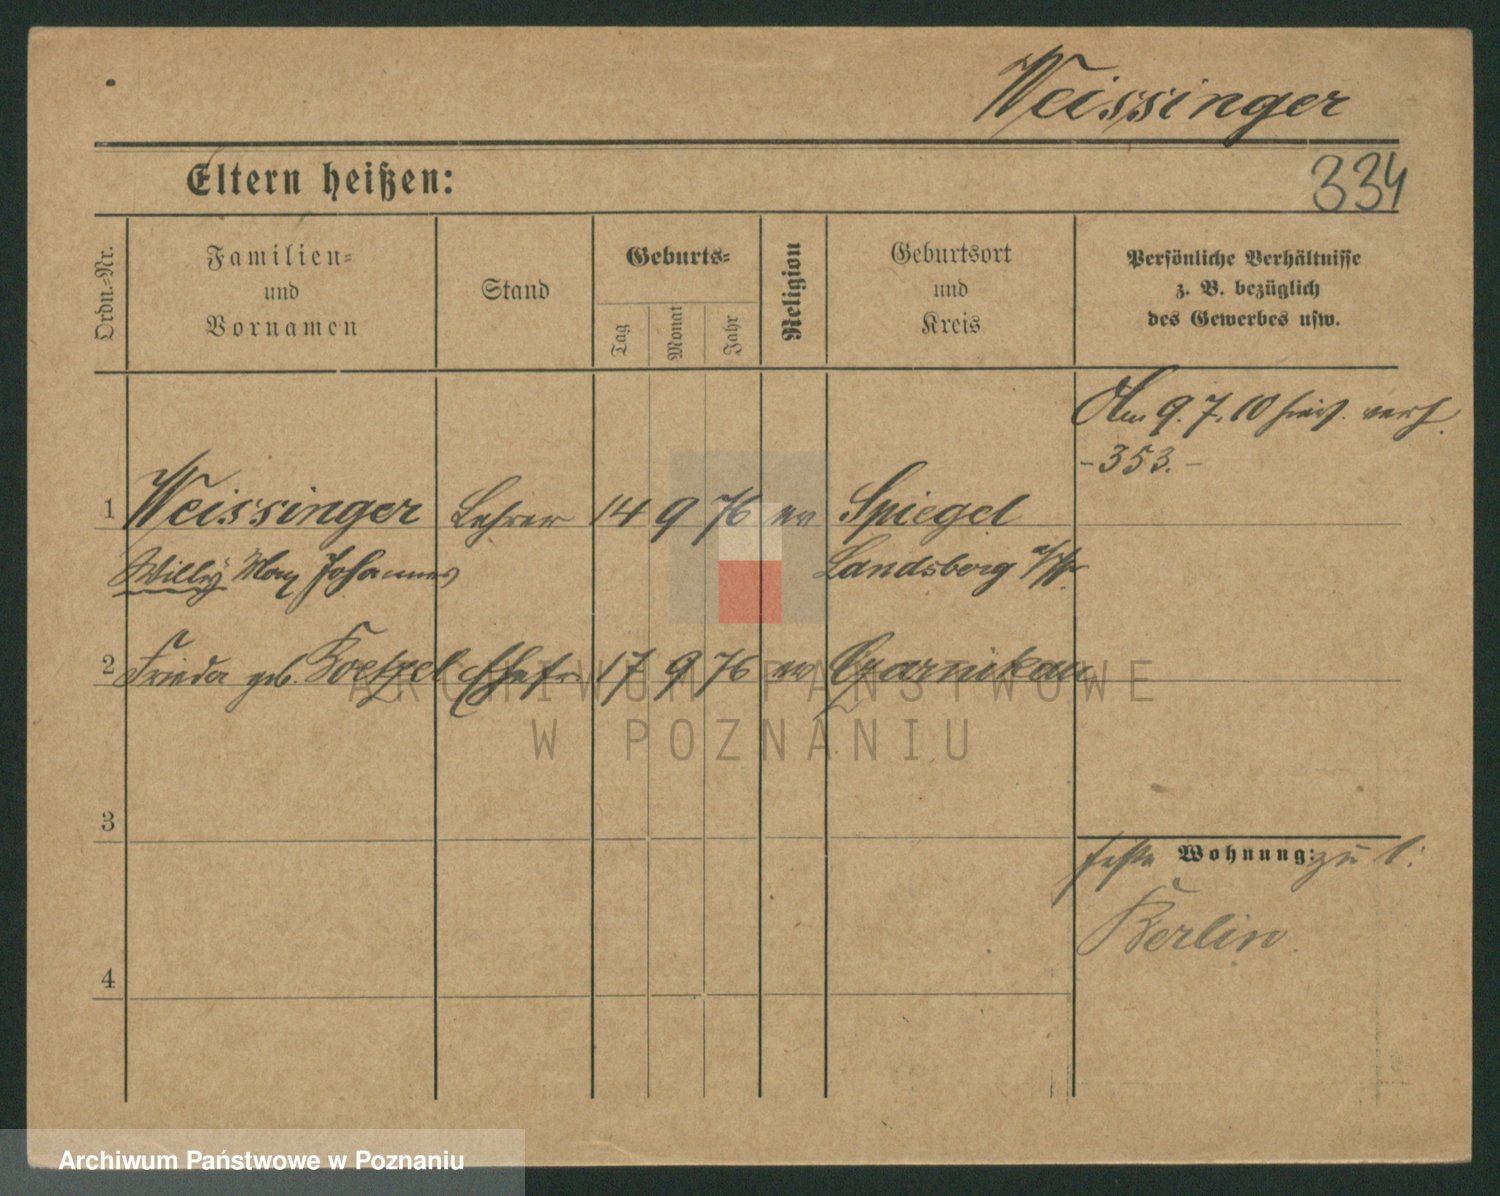 Weissinger
Eltern heißen:
334
Ordn.-Nr.
Familien-
und
Vornamen
Stand
Geburts-
Tag
Monat
Jahr
Religion
Geburtsort
und
Kreis
Persönliche Verhältnisse
z. B. bezüglich
des Gewerbes usw.
Am 9.7.10 hier verh.
-353.-
1 Weissinger Lehrer 14 9 76 ev Spiegel
Willy Max Johannes Landsberg a/W.
2 Frieda geb. Koetzel Ehefr. 17 9 76 ev Czarnikau
ARCHIWUM PAŃSTWOWE
W POZNANIU
3
feste Wohnung: zu
Berlin.
4
Archiwum Państwowe w Poznaniu